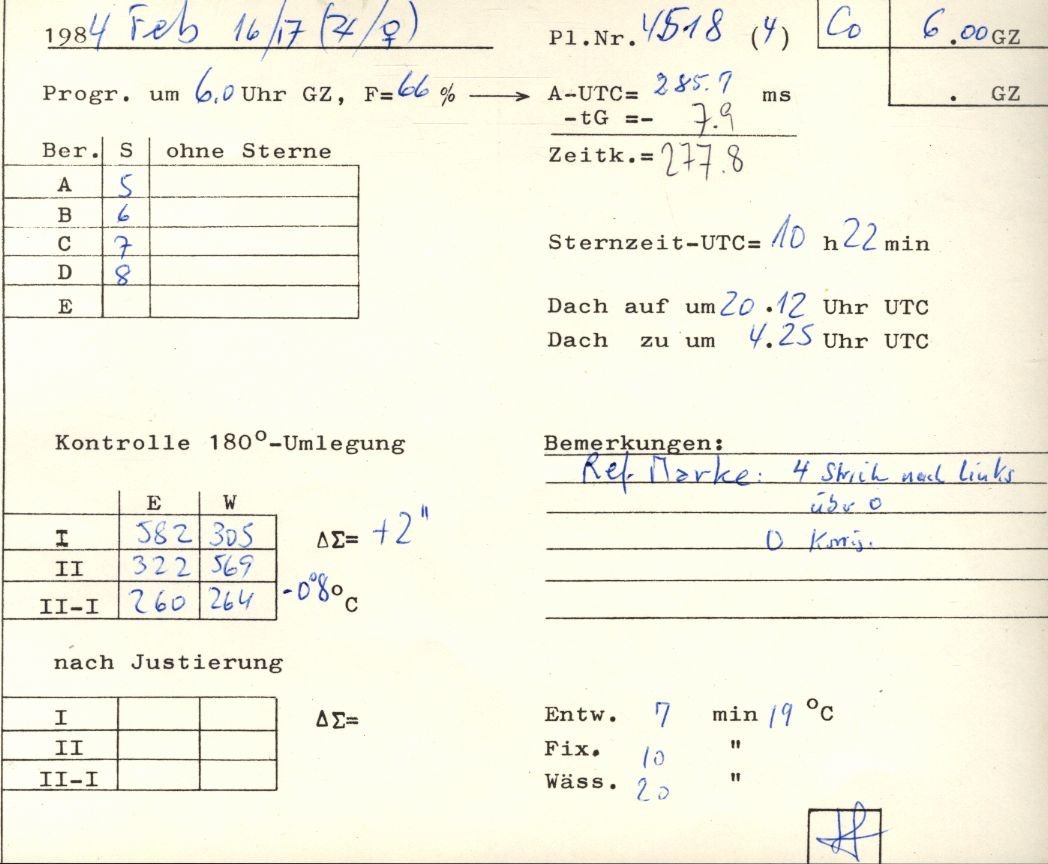 1984 Feb 16/17 (♃/♀) Pl.Nr. 4518 (4) Co 6.00 GZ
. GZ
Progr. um 6.0 Uhr GZ, F= 66 % → A-UTC= 285.7 ms
-tG =- 7.9
Zeitk.= 277.8
Ber. S ohne Sterne
A 5
B 6
C 7
D 8
E
Sternzeit-UTC= 10 h 22 min
Dach auf um 20.12 Uhr UTC
Dach zu um 4.25 Uhr UTC
Kontrolle 180°-Umlegung
E W
I 582 305 ΔΣ= +2"
II 322 569
II-I 260 264 -0°8 °C
Bemerkungen:
Ref. Marke: 4 Strich nach links
über 0
0 Korrig.
nach Justierung
I ΔΣ=
II
II-I
Entw. 7 min 19 °C
Fix. 10 "
Wäss. 20 "